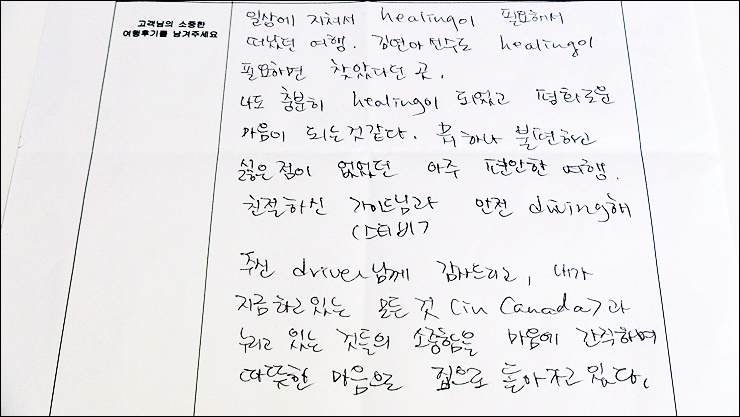 고객님의 소중한
여행후기를 남겨주세요
일상에 지쳐서 healing이 필요해서
떠났던 여행. 김연아 선수도 healing이
필요하면 찾았다던 곳.
나도 충분히 healing이 되었고 평화로운
마음이 되는것같다. 뭐하나 불편하고
싫은점이 없었던 아주 편안한 여행.
친절하신 가이드님과 안전 driving해
(스티브)
주신 driver님께 감사드리고, 내가
지금 하고 있는 모든 것 (in Canada)과
누리고 있는 것들의 소중함을 마음에 간직하며
따뜻한 마음으로 집으로 돌아가고 있다.